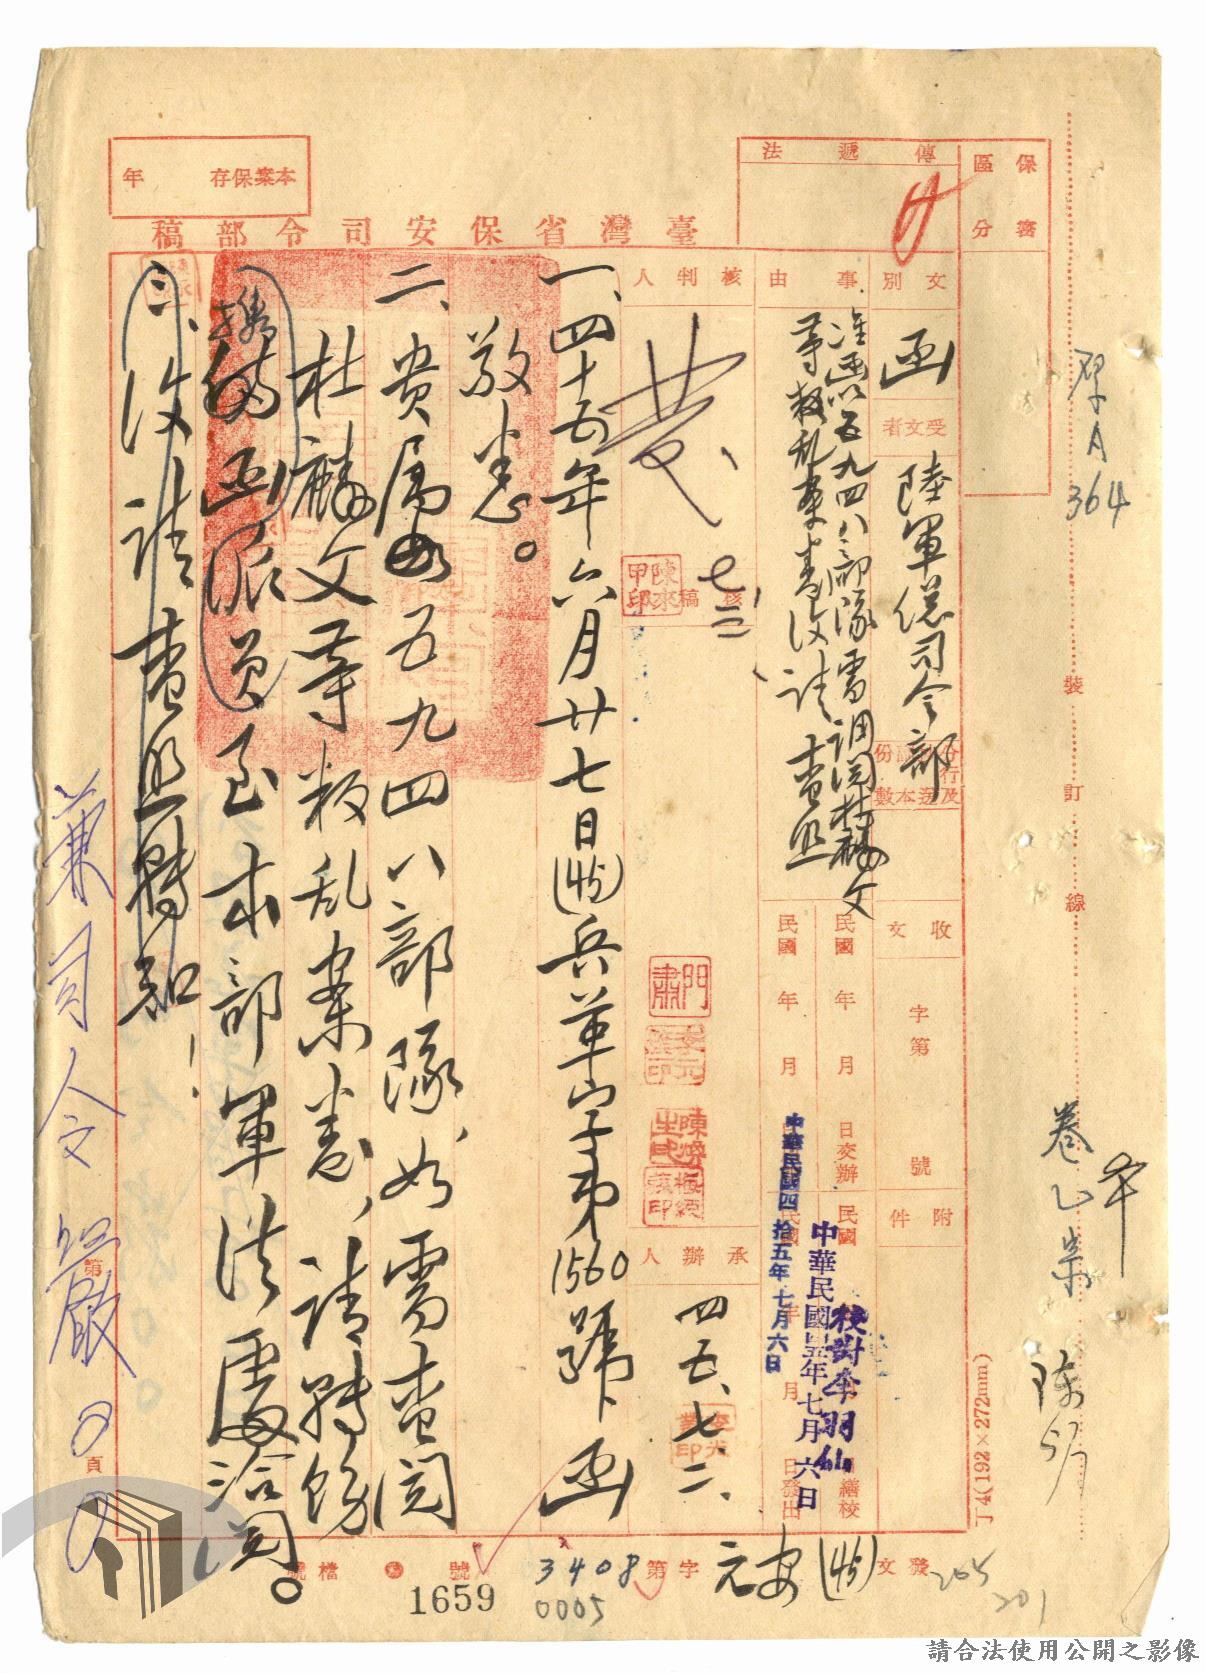 保密
區分
傳遞法
本案保存　　年
臺灣省保安司令部稿
文別
函
受文者
陸軍總司令部
事由
准函以五九四八部隊需調閱杜麟文
等叛乱案卷復請查照
核判人
黃
七二
核稿
陳來甲印
收文
字第
號
附件
民國　年　月　日交辦
民國　年　月　日發出
中華民國四拾五年七月六日
中華民國四五年七月六日
校對李羽仙
承辦人
四五、七、二、
一、四十五年六月廿七日(45)兵革字第1560號函
敬悉。
二、貴屬如五九四八部隊，如需查閱
杜麟文等叛乱案卷，請轉飭
攜函派員至本部軍法處洽閱。
三、復請查照轉知！
兼司令嚴○○
第　頁
裝訂線
A
364
卷
丁4(192×272mm)
發文
(45)
安元
字第
3408
0005
號
檔號
1659
205
201
請合法使用公開之影像